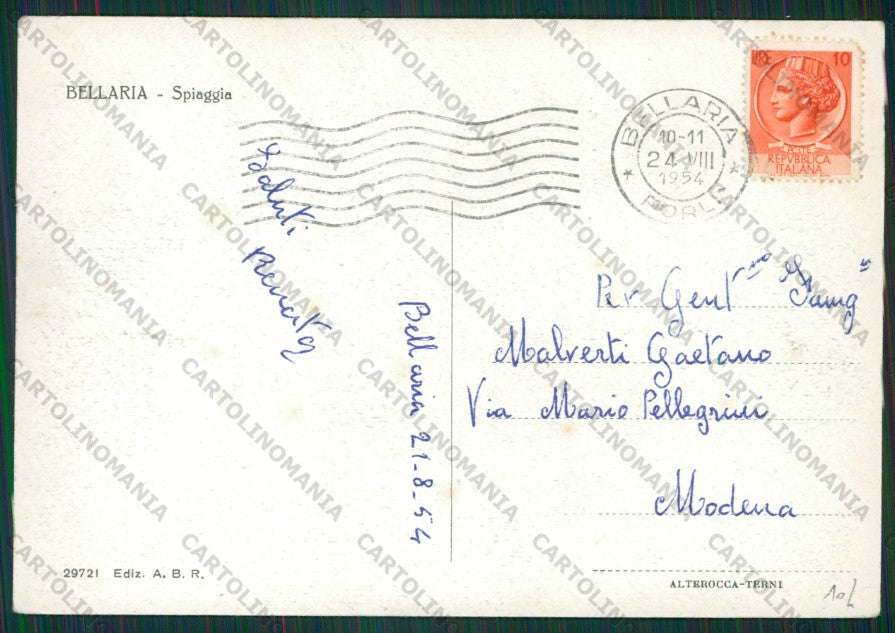 BELLARIA - Spiaggia
LIRE 10
REPVBBLICA
ITALIANA
BELLARIA
10-11
24 VIII
1954
FORLI
Saluti
Renata
Bellaria 21-8-54
Per Gent ma Famig a
Malverti Gaetano
Via Mario Pellegrini
Modena
29721 Ediz. A. B. R.
ALTEROCCA-TERNI
10L
CARTOLINOMANIA